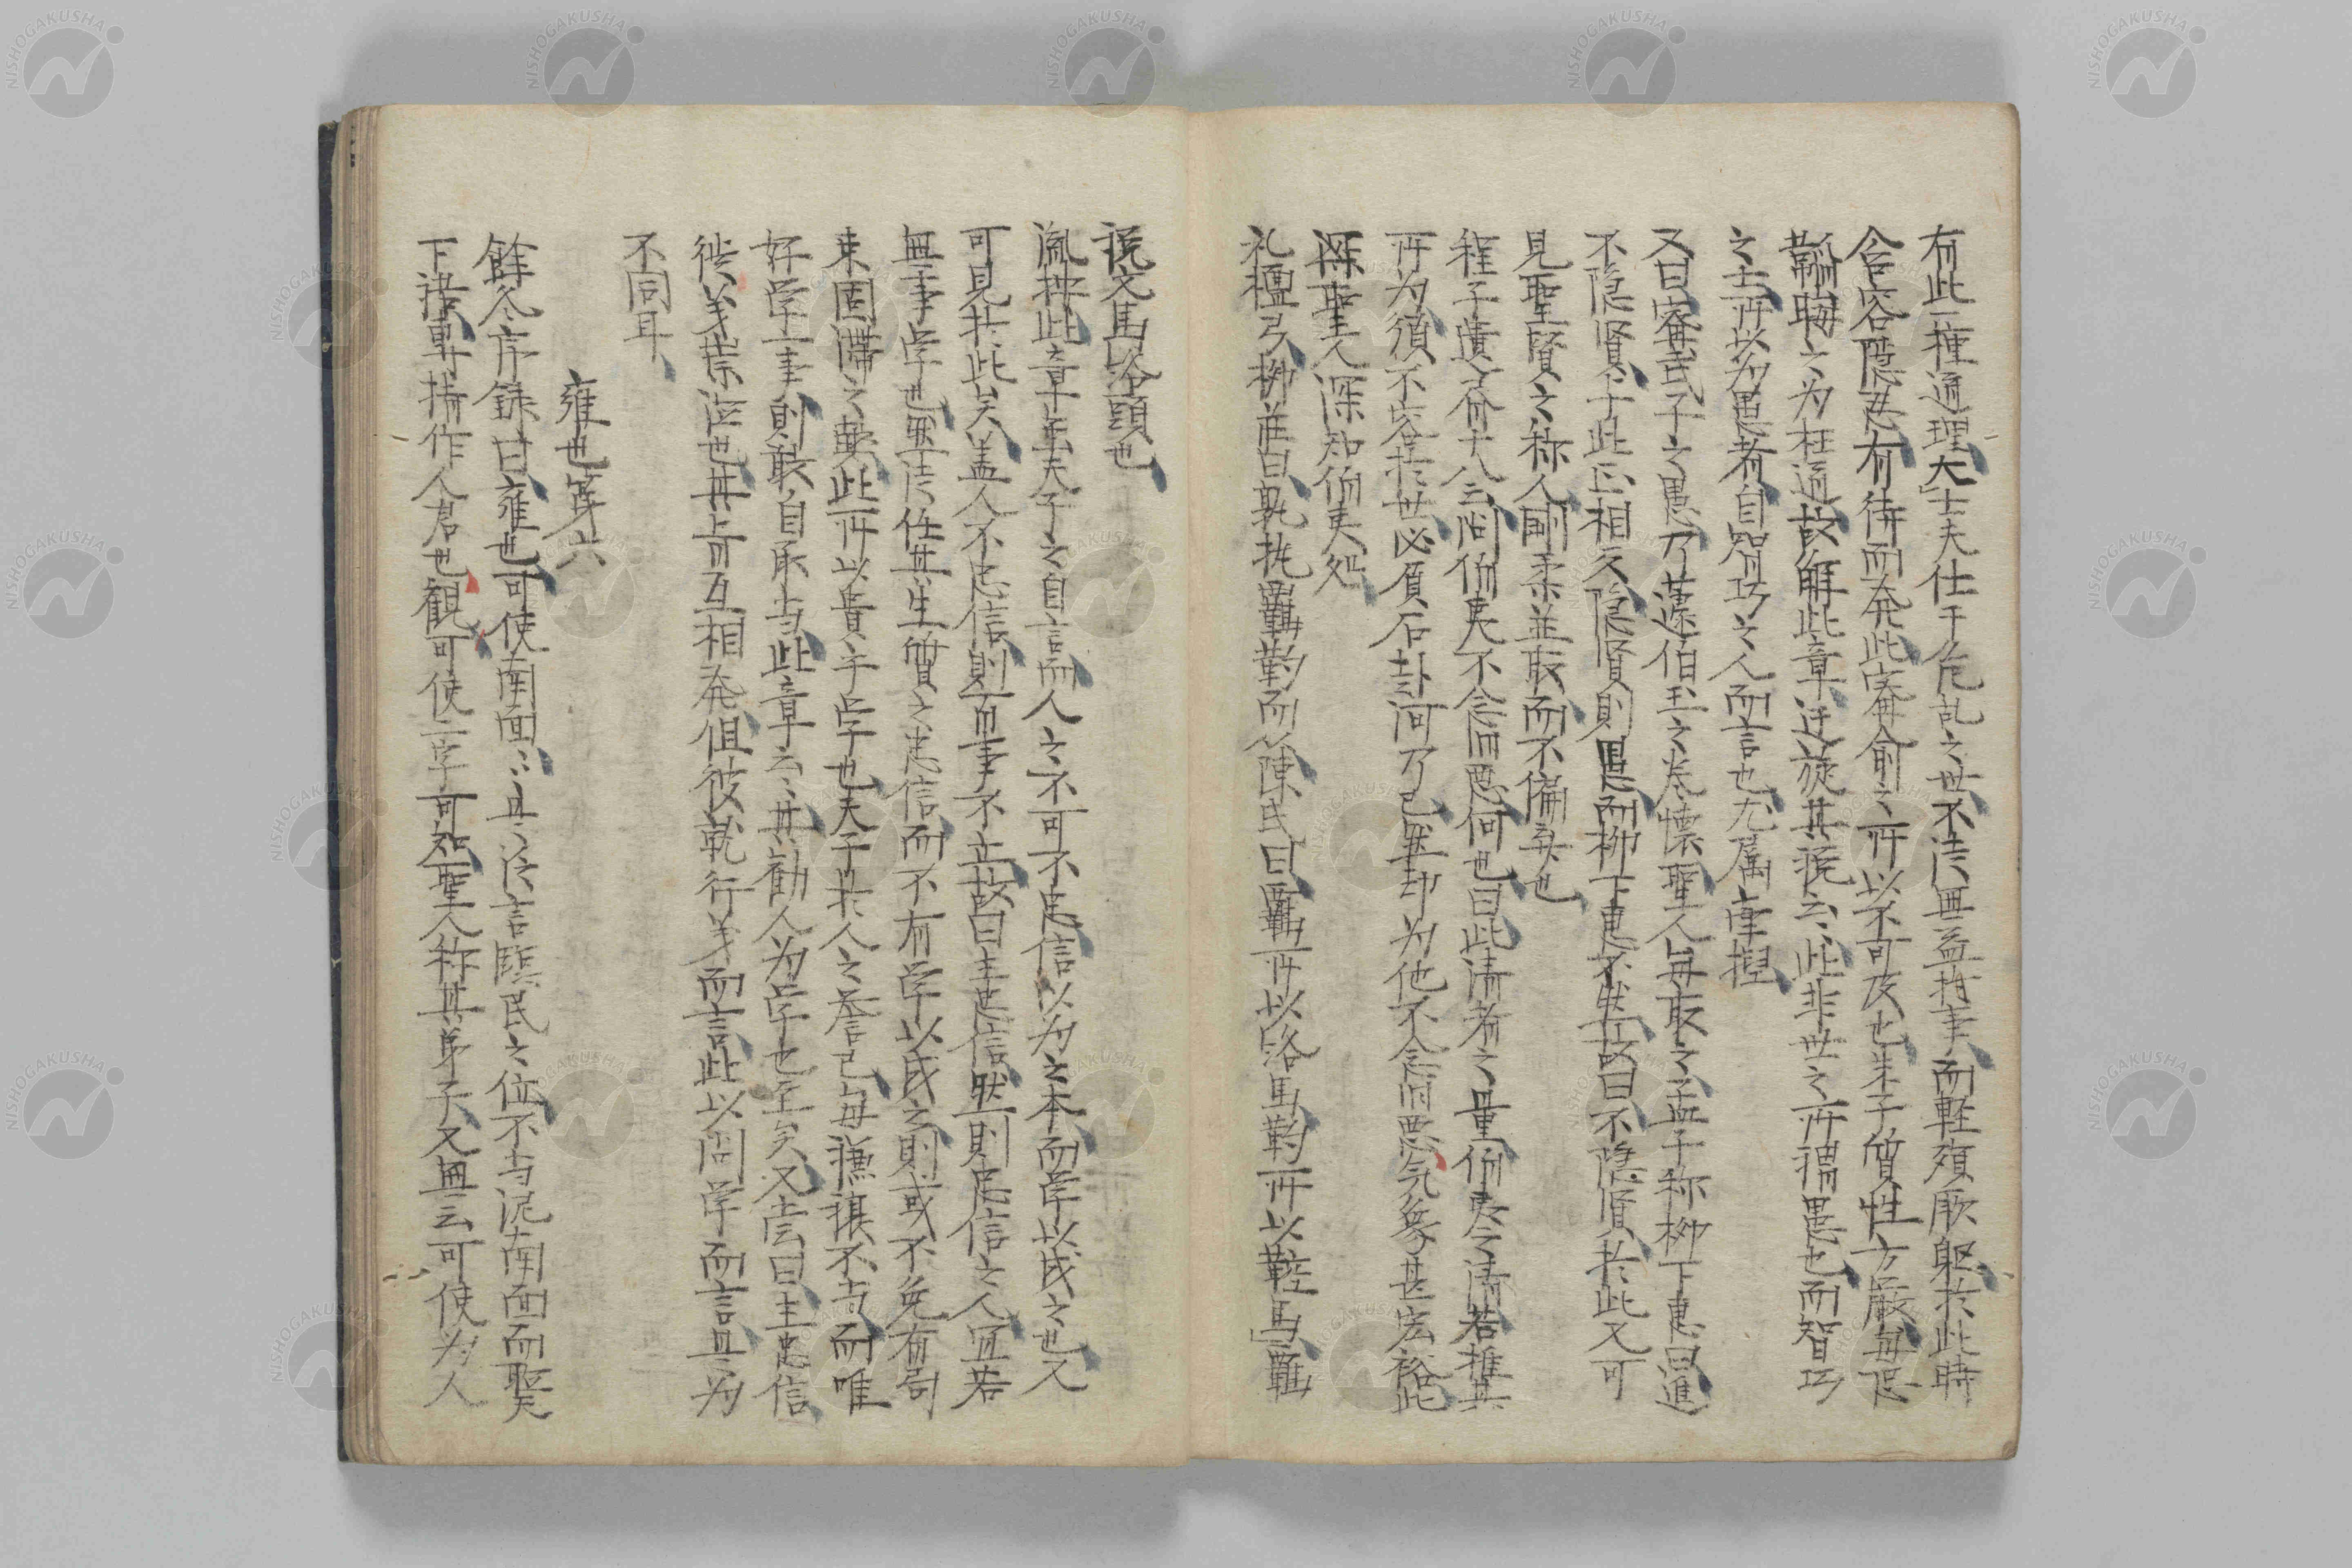 有此一種通理大夫仕于危乱之世不済無益持事而軽殞厥躯於此時
含容隠忍有待而発此甯俞之所以不可及也朱子質性方厳毎忌
韜晦之为枉通故解此章迂旋其説云此非世之所謂愚也而智巧
之士所以为愚者自智巧之人而言也尤属牽捏
又曰甯武子之愚乃蘧伯玉之巻懐聖人毎取之孟子称柳下恵曰進
不隠賢于此正相反隠賢則愚而柳下恵不然故曰不隠賢於此又可
見聖賢之称人剛柔並取而不偏癈也
程子遺書第十八云問伯夷不念旧悪何也曰此清者之量伯夷之清若推其
所为須不容於世必負石赴河乃已然却为他不念旧悪気象甚宏裕此
深聖人深知伯夷処
礼檀弓柳荘曰孰執羈靮而従陳氏曰羈所以絡馬靮所以鞚馬羈
説文馬絡頭也
胤按此章主夫子之自言而人之不可不忠信以为之本而学以成之也又
可見於此矣蓋人不忠信則百事不立故曰主忠信然則忠信之人宜若
無事学也然徒任其生質之忠信而不有学以成之則或不免有局
束固滞之弊此所以貴乎学也夫子於人之誉己毎撝謙不与而唯
好学一事則敢自承与此章云云其勧人为学也至矣又嘗曰主忠信
徙義崇徳也其旨可互相発但彼就行義而言此以問学而言且为
不同耳
雍也第六
餘冬序録曰雍也可使南面云云且人泛言臨民之位不与泥南面而聖天
下襟専指作人君也観可使二字可知聖人称其弟子又無云可使为人